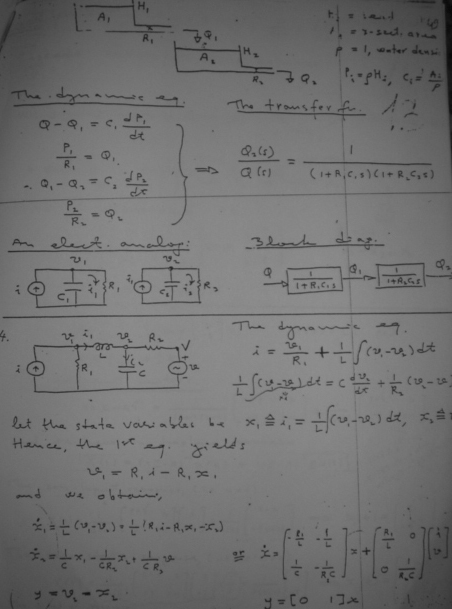 A₁ H₁
R₁ Q₁
A₂ H₂
R₂ Q₂
ρ = 1, water
Pᵢ = ρHᵢ, Cᵢ = Aᵢ/ρ
The dynamic eq.
Q - Q₁ = C₁ dP₁/dt
P₁/R₁ = Q₁
Q₁ - Q₂ = C₂ dP₂/dt
P₂/R₂ = Q₂
The transfer fn.
⇒ Q₂(s)/Q(s) = 1/((1+R₁C₁s)(1+R₂C₂s))
An elect. analog:
v₁ v₂
i C₁ i₁ R₁ C₂ i₂ R₂
Block diag.
Q 1/(1+R₁C₁s) Q₁ 1/(1+R₂C₂s) Q₂
4.
v₁ i₁ v₂ R₂ V
i R₁ L C v
The dynamic eq.
i = v₁/R₁ + 1/L ∫(v₁-v₂)dt
1/L ∫(v₁-v₂)dt = C dv₂/dt + 1/R₂ (v₂-v
let the state variables be x₁ ≜ i₁ = 1/L ∫(v₁-v₂)dt, x₂ ≜
Hence, the 1st eq. yields
v₁ = R₁i - R₁x₁
and we obtain,
ẋ₁ = 1/L (v₁-v₂) = 1/L (R₁i-R₁x₁-x₂)
ẋ₂ = 1/C x₁ - 1/CR₂ x₂ + 1/CR₂ v
or ẋ = [-R₁/L -1/L; 1/C -1/R₂C] x + [R₁/L 0; 0 1/R₂C] [i; v]
y = v₂ = x₂
y = [0 1]x